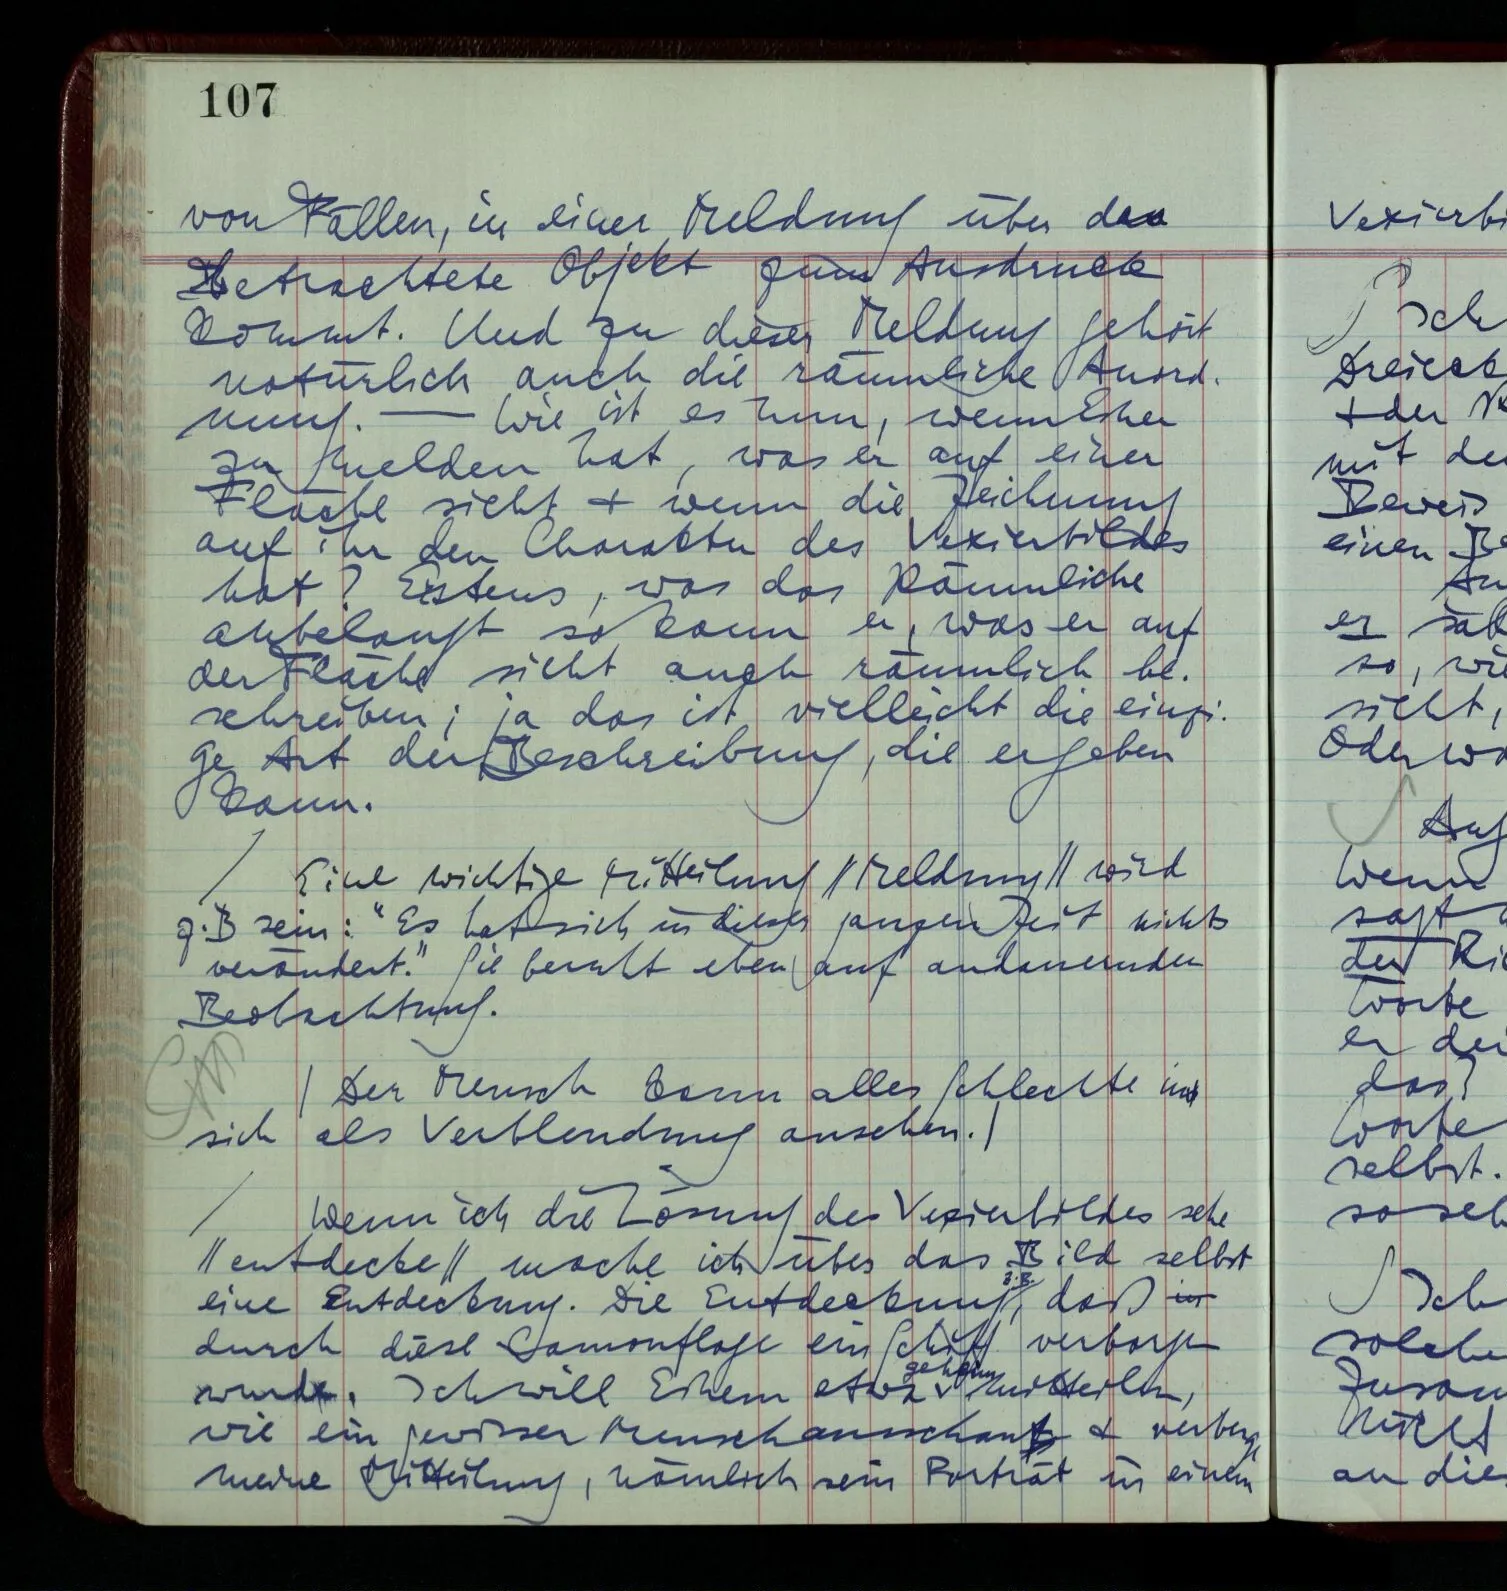 107
von Fällen, in einer Meldung über das
betrachtete Objekt zum Ausdruck
kommt. Und zu dieser Meldung gehört
natürlich auch die räumliche Anord-
nung. — Wie ist es nun, wenn Einer
zu melden hat, was er auf einer
Fläche sieht & wenn die Zeichnung
auf ihr den Charakter des Vexierbildes
hat? Erstens, was das Räumliche
anbelangt so kann er, was er auf
der Fläche sieht auch räumlich be-
schreiben; ja das ist vielleicht die einzi-
ge Art der Beschreibung, die er geben
kann.
/ Eine wichtige Mitteilung //Meldung// wird
z.B sein: "Es hat sich in dieser ganzen Zeit nichts
verändert." Sie beruht eben auf andauernder
Beobachtung.
/ Der Mensch kann alles Schlechte in
sich als Verblendung ansehen. /
/ Wenn ich die Lösung des Vexierbildes sehe
//entdecke// mache ich über das Bild selbst
eine Entdeckung. Die Entdeckung z.B., daß in
durch diese Camouflage ein Schiff verborgen
wurde. Ich will Einem etwas geheim mitteilen,
wie ein gewisser Mensch ausschaut & verberge
meine Mitteilung, nämlich sein Porträt in einem
Vexierbi
Ich
Dreieck
& der
mit de
Beweis
einen Be
An
er sa
so, wie
sieht,
Oder wa
Auf
Wenn
sagt
der Ric
Worte
er die
das?
Worte
selbst.
so seh
Ich
solche
Zusam
Nicht
an die